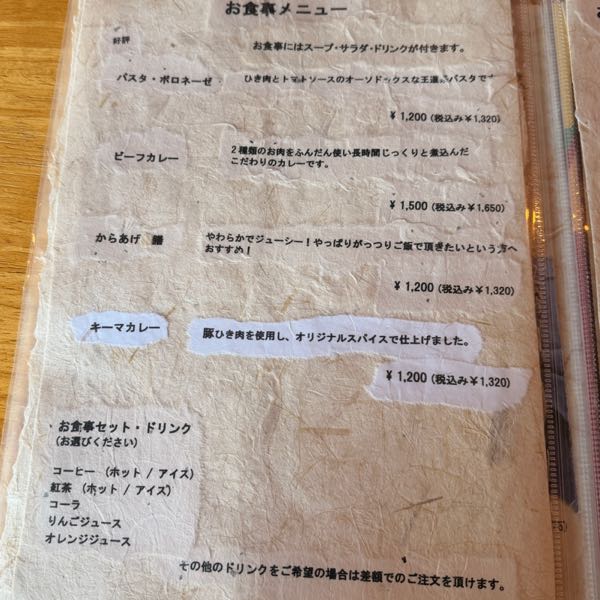 お食事メニュー
好評
お食事にはスープ・サラダ・ドリンクが付きます。
パスタ・ボロネーゼ
ひき肉とトマトソースのオーソドックスな王道パスタです
¥1,200 (税込み¥1,320)
ビーフカレー
2種類のお肉をふんだん使い長時間じっくりと煮込んだ
こだわりのカレーです。
¥1,500 (税込み¥1,650)
からあげ 膳
やわらかでジューシー!やっぱりがっつりご飯で頂きたいという方へ
おすすめ!
¥1,200 (税込み¥1,320)
キーマカレー
豚ひき肉を使用し、オリジナルスパイスで仕上げました。
¥1,200 (税込み¥1,320)
お食事セット・ドリンク
(お選びください)
コーヒー (ホット / アイズ)
紅茶 (ホット / アイズ)
コーラ
りんごジュース
オレンジジュース
その他のドリンクをご希望の場合は差額でのご注文を頂けます。